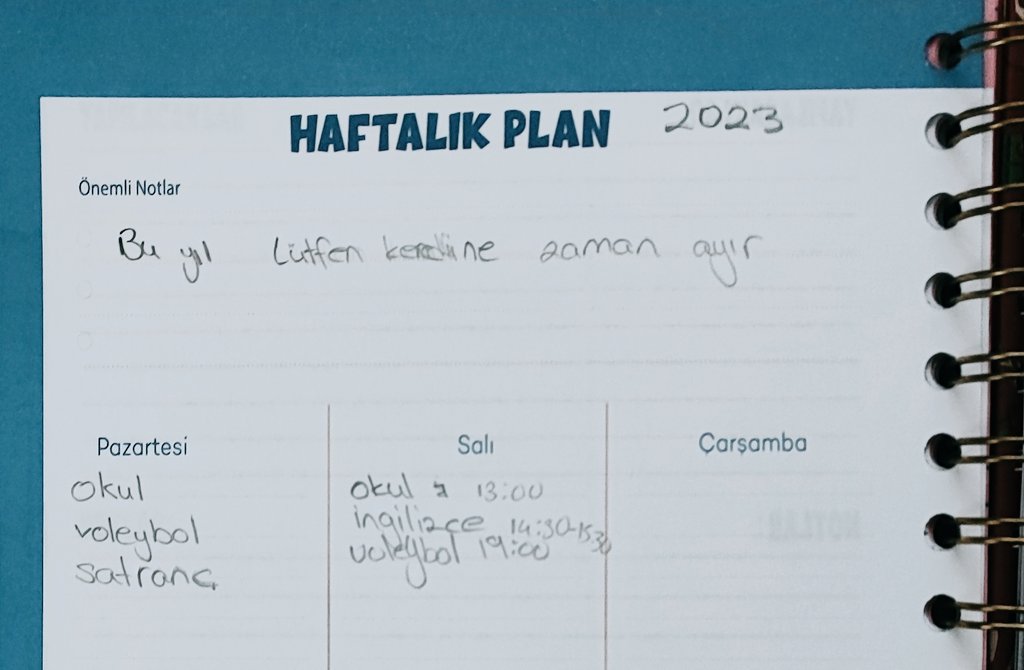 HAFTALIK PLAN 2023
Önemli Notlar
Bu yıl lütfen kendine zaman ayır
Pazartesi
okul
voleybol
satranç
Salı
okul 13:00
ingilizce 14:30-1530
voleybol 19:00
Çarşamba